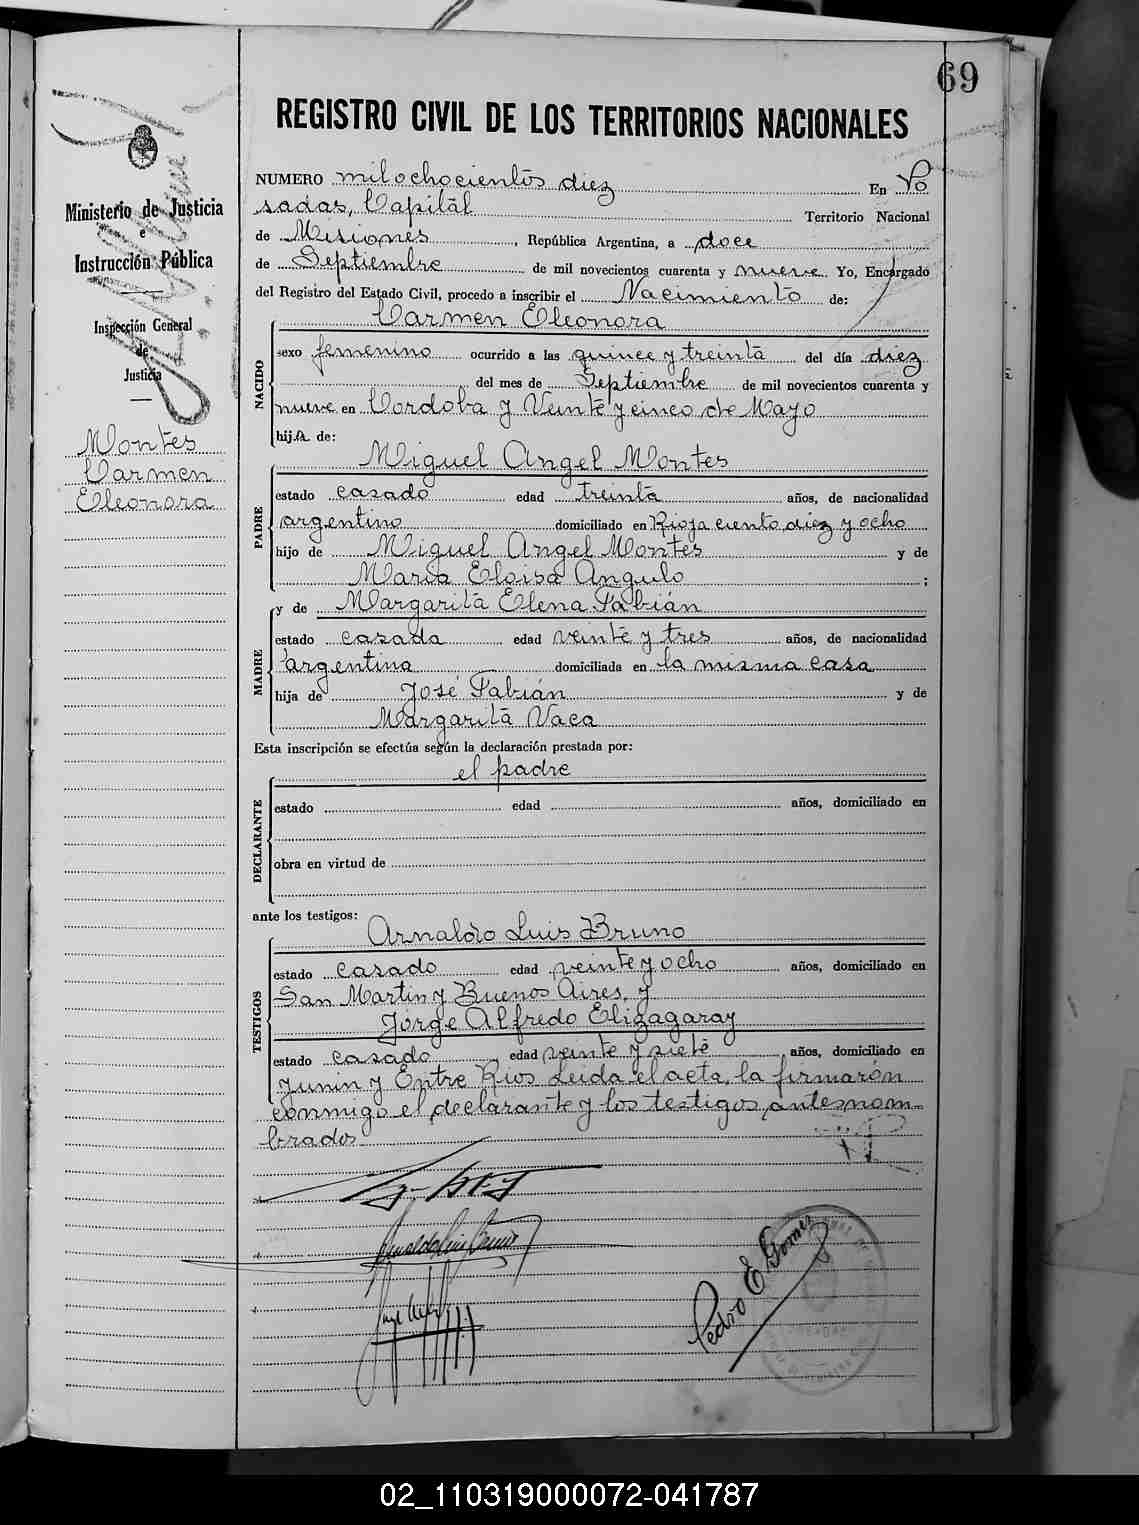 69
REGISTRO CIVIL DE LOS TERRITORIOS NACIONALES
Ministerio de Justicia
e
Instrucción Pública
Inspección General
de
Justicia
Montes
Carmen
Eleonora
NUMERO milochocientos diez En Po
sadas, Capital Territorio Nacional
de Misiones, República Argentina, a doce
de Septiembre de mil novecientos cuarenta y nueve Yo, Encargado
del Registro del Estado Civil, procedo a inscribir el Nacimiento de:
Carmen Eleonora
NACIDO
sexo femenino ocurrido a las quince y treinta del día diez
del mes de Septiembre de mil novecientos cuarenta y
nueve en Cordoba y Veinte y cinco de Mayo
hija de:
Miguel Angel Montes
PADRE
estado casado edad treinta años, de nacionalidad
argentino domiciliado en Rioja ciento diez y ocho
hijo de Miguel Angel Montes y de
Maria Eloisa Angulo;
y de Margarita Elena Fabián
MADRE
estado casada edad veinte y tres años, de nacionalidad
argentina domiciliada en la misma casa
hija de José Fabián y de
Margarita Vaca
Esta inscripción se efectúa según la declaración prestada por:
el padre
DECLARANTE
estado edad años, domiciliado en
obra en virtud de
ante los testigos:
Arnaldo Luis Bruno
TESTIGOS
estado casado edad veinte y ocho años, domiciliado en
San Martin y Buenos Aires, y
Jorge Alfredo Elizagaray
estado casado, edad veinte y siete años, domiciliado en
Junin y Entre Rios Leida el acta, la firmarón
conmigo el declarante y los testigos antesnom-
brados
Arnaldo Luis Bruno
Pedro E. Gomez
02_110319000072-041787